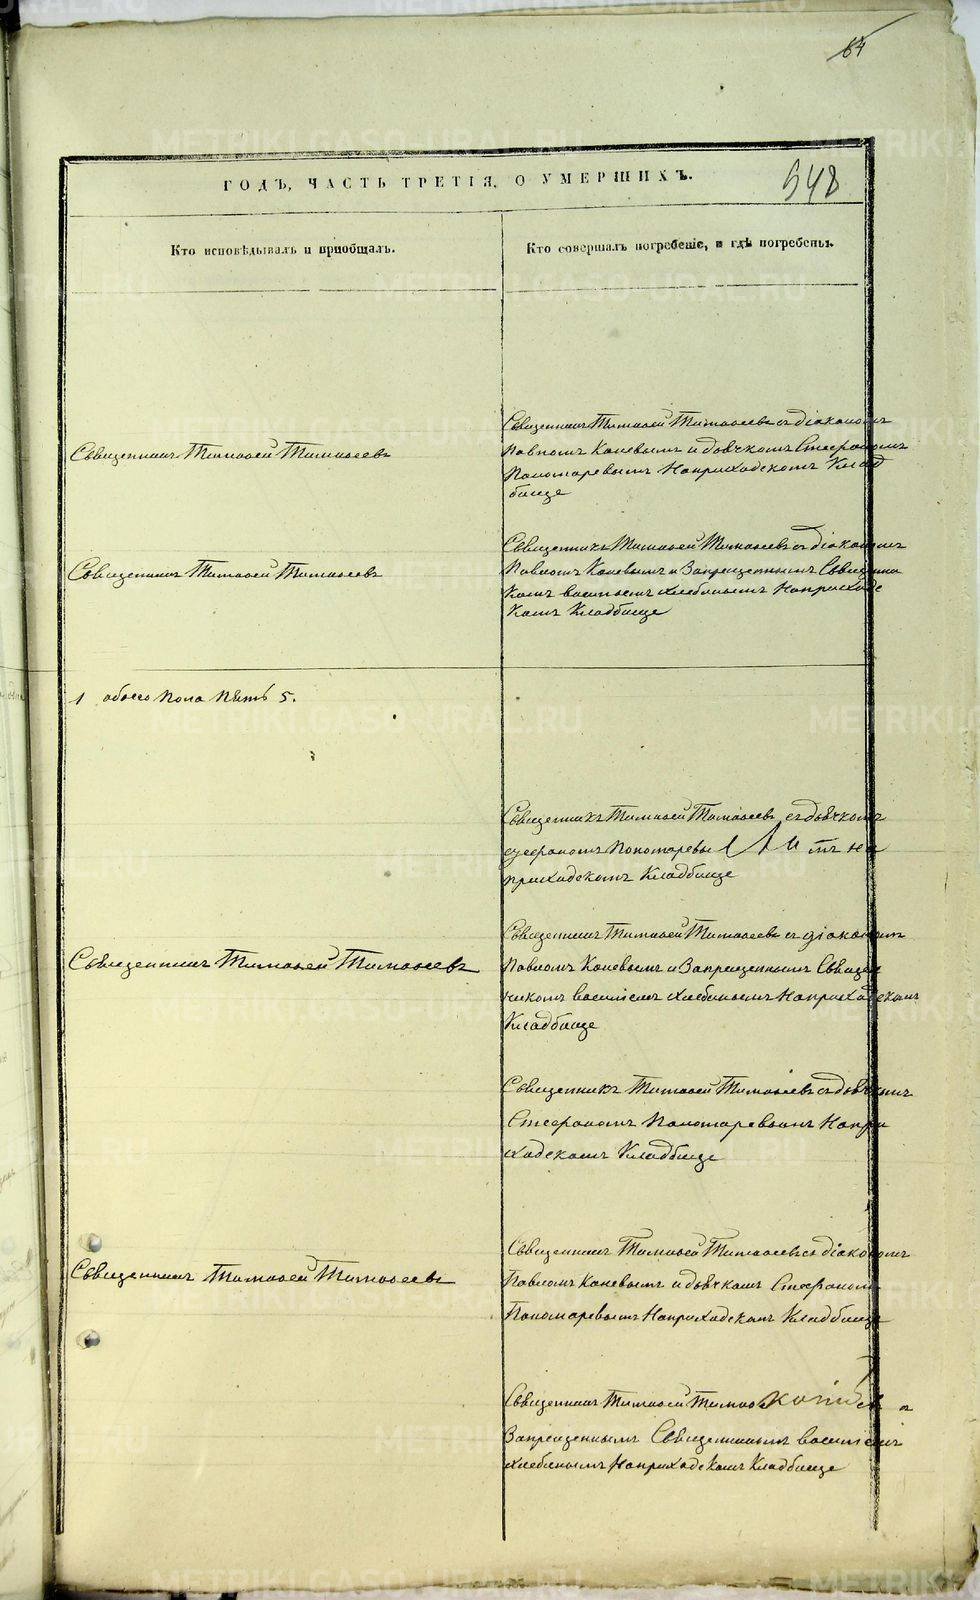 64
ГОДЪ, ЧАСТЬ ТРЕТІЯ, О УМЕРШИХЪ.
948
Кто исповѣдывалъ и пріобщалъ.
Кто совершалъ погребеніе, и гдѣ погребены.
Священникъ Тимоѳей Тимоѳеевъ
Священникъ Тимоѳей Тимоѳеевъ съ діакономъ
Павломъ Каневымъ и дьячкомъ Стефаномъ
Пономаревымъ На приходскомъ Клад
бище
Священникъ Тимоѳей Тимоѳеевъ
Священникъ Тимоѳей Тимоѳеевъ съ діакономъ
Павломъ Каневымъ и Запрещеннымъ Священни
комъ василіемъ хлебинымъ На приходс
комъ Кладбище
1 обоего пола пять 5.
Священникъ Тимоѳей Тимоѳеевъ съ дьячкомъ
Стефаномъ Пономаревы мъ На
приходскомъ Кладбище
Священникъ Тимоѳей Тимоѳеевъ
Священникъ Тимоѳей Тимоѳеевъ съ діакономъ
Павломъ Каневымъ и Запрещеннымъ Священ
никомъ василіемъ хлебинымъ На приходскомъ
Кладбище
Священникъ Тимоѳей Тимоѳеевъ съ дьячкомъ
Стефаномъ Пономаревымъ На при
ходскомъ Кладбище
Священникъ Тимоѳей Тимоѳеевъ
Священникъ Тимоѳей Тимоѳеевъ съ діакономъ
Павломъ Каневымъ и дьячкомъ Стефаномъ
Пономаревымъ На приходскомъ Кладбище
Священникъ Тимоѳей
Запрещеннымъ Священникомъ василіемъ
хлебинымъ На приходскомъ Кладбище
METRIKI.GASO-URAL.RU